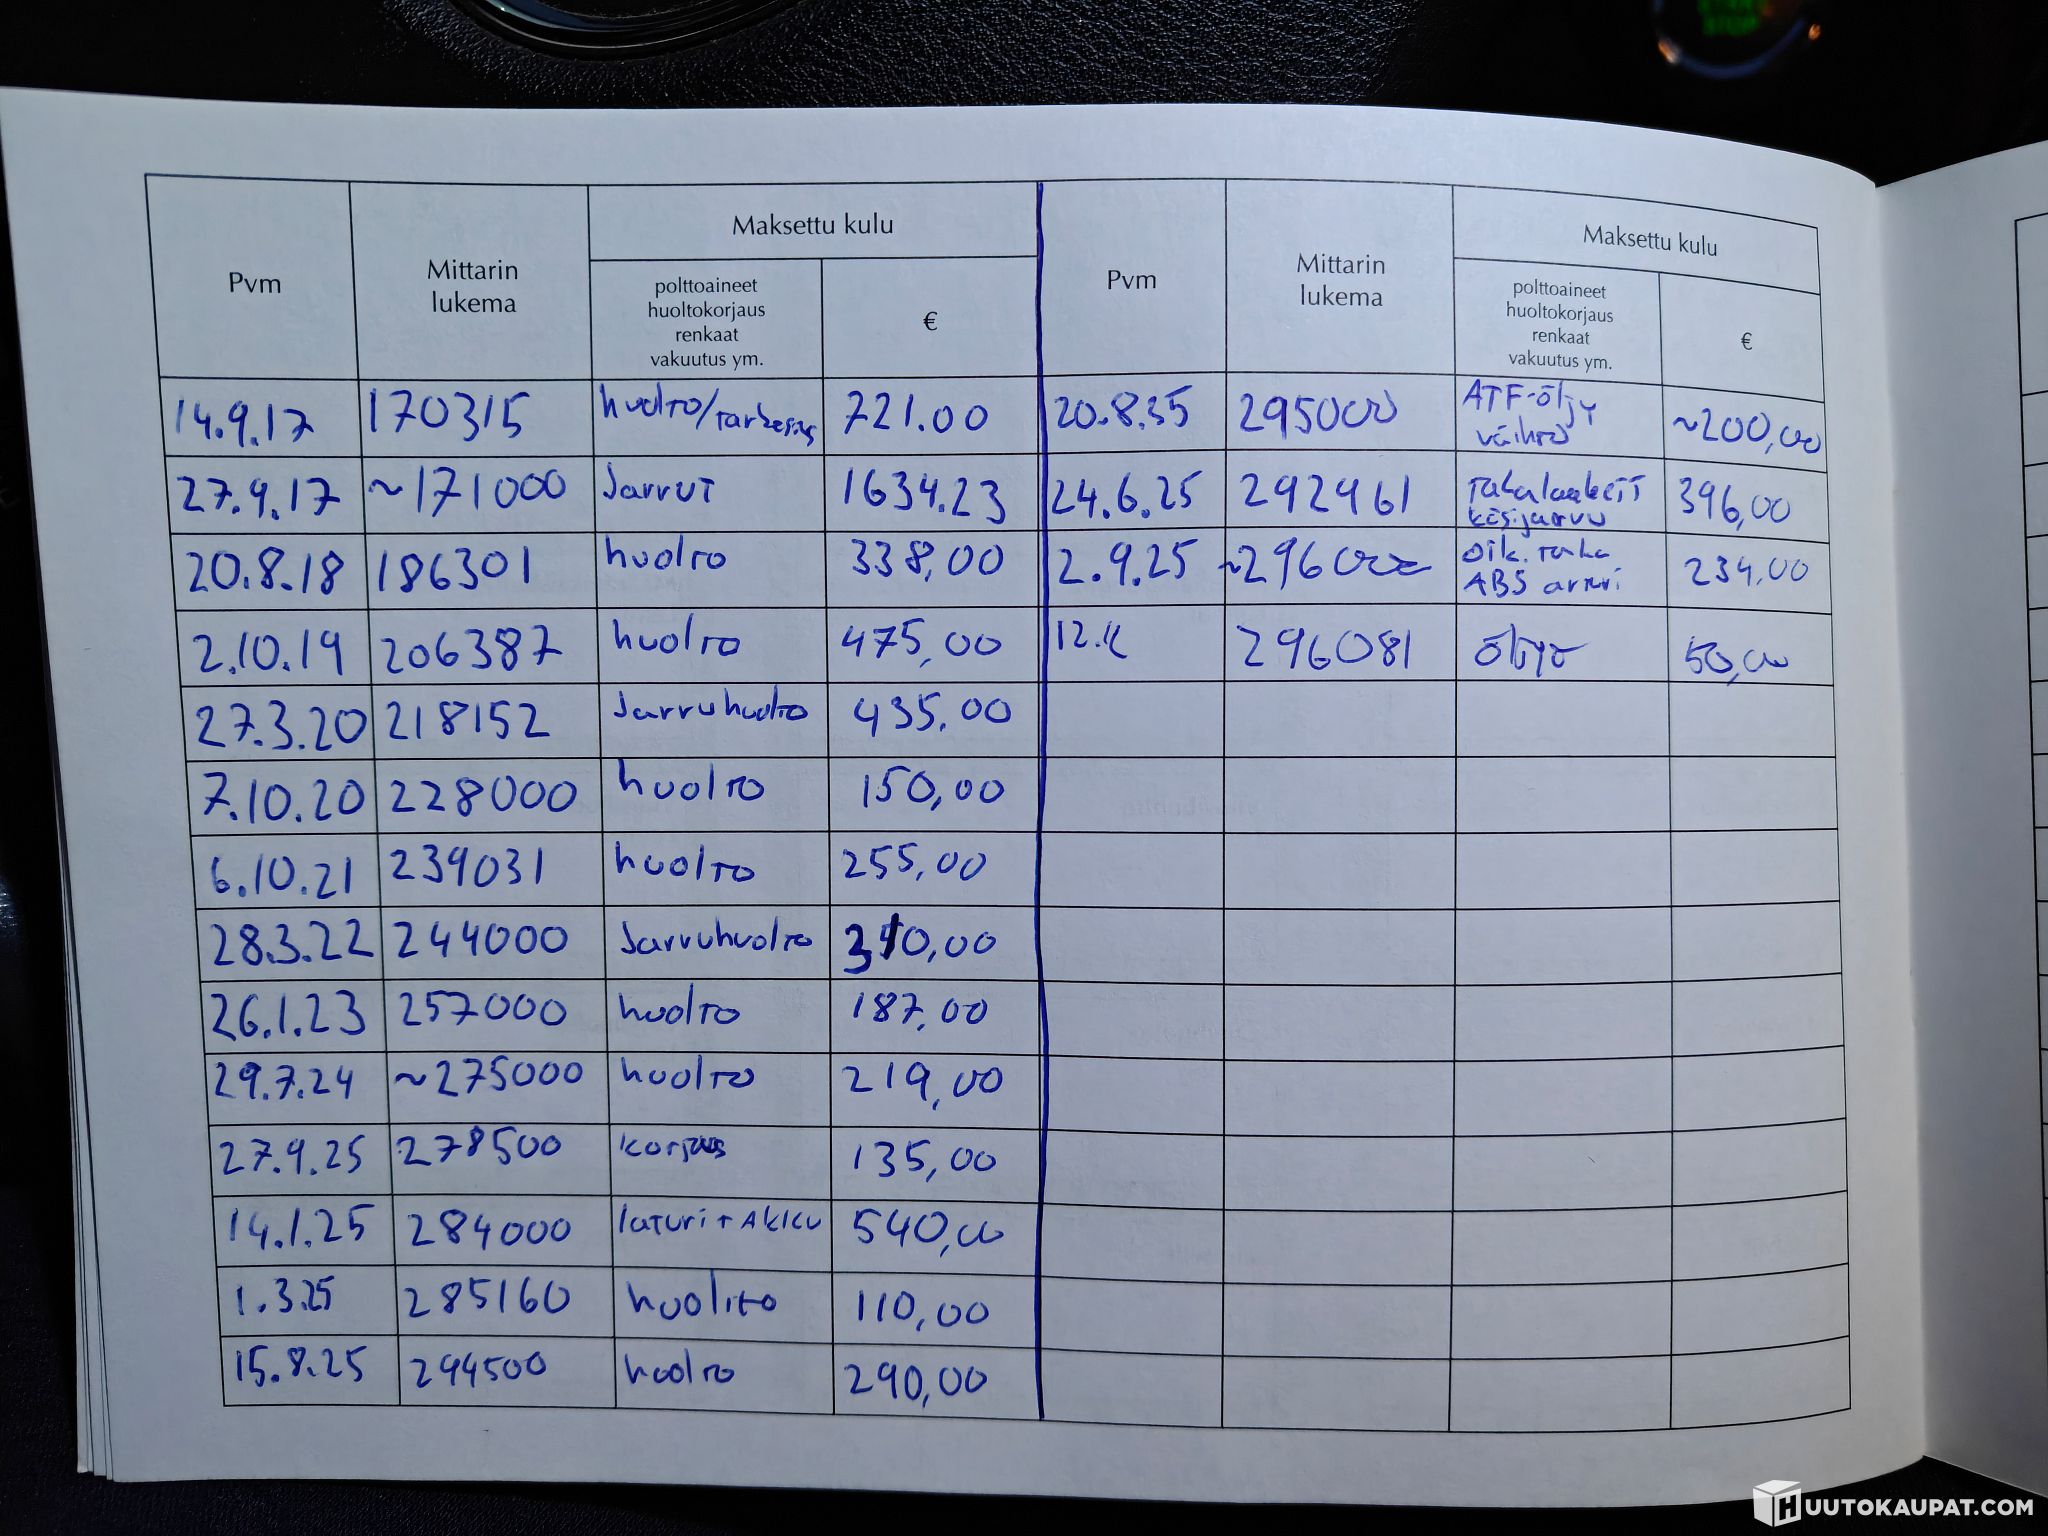 START
STOP
Pvm
Mittarin
lukema
Maksettu kulu
polttoaineet
huoltokorjaus
renkaat
vakuutus ym.
€
Pvm
Mittarin
lukema
Maksettu kulu
polttoaineet
huoltokorjaus
renkaat
vakuutus ym.
€
14.9.17 170315 huolto/tarkastus 721.00
27.9.17 ~171000 Jarrut 1634.23
20.8.18 186301 huolto 338,00
2.10.19 206387 huolto 475,00
27.3.20 218152 Jarruhuolto 435.00
7.10.20 228000 huolto 150,00
6.10.21 239031 huolto 255,00
28.3.22 244000 Jarruhuolto 310,00
26.1.23 257000 huolto 187,00
29.7.24 ~275000 huolto 219,00
27.9.25 278500 korjaus 135,00
14.1.25 284000 laturi + AKKU 540,00
1.3.25 285160 huolto 110,00
15.8.25 294500 huolto 290,00
20.8.35 295000 ATF-öljy
vaihto ~200,00
24.6.25 292961
käsijarru 396,00
2.9.25 ~296000 oik. taka
ABS anturi 234,00
296081 öljyt 50,00
HUUTOKAUPAT.COM